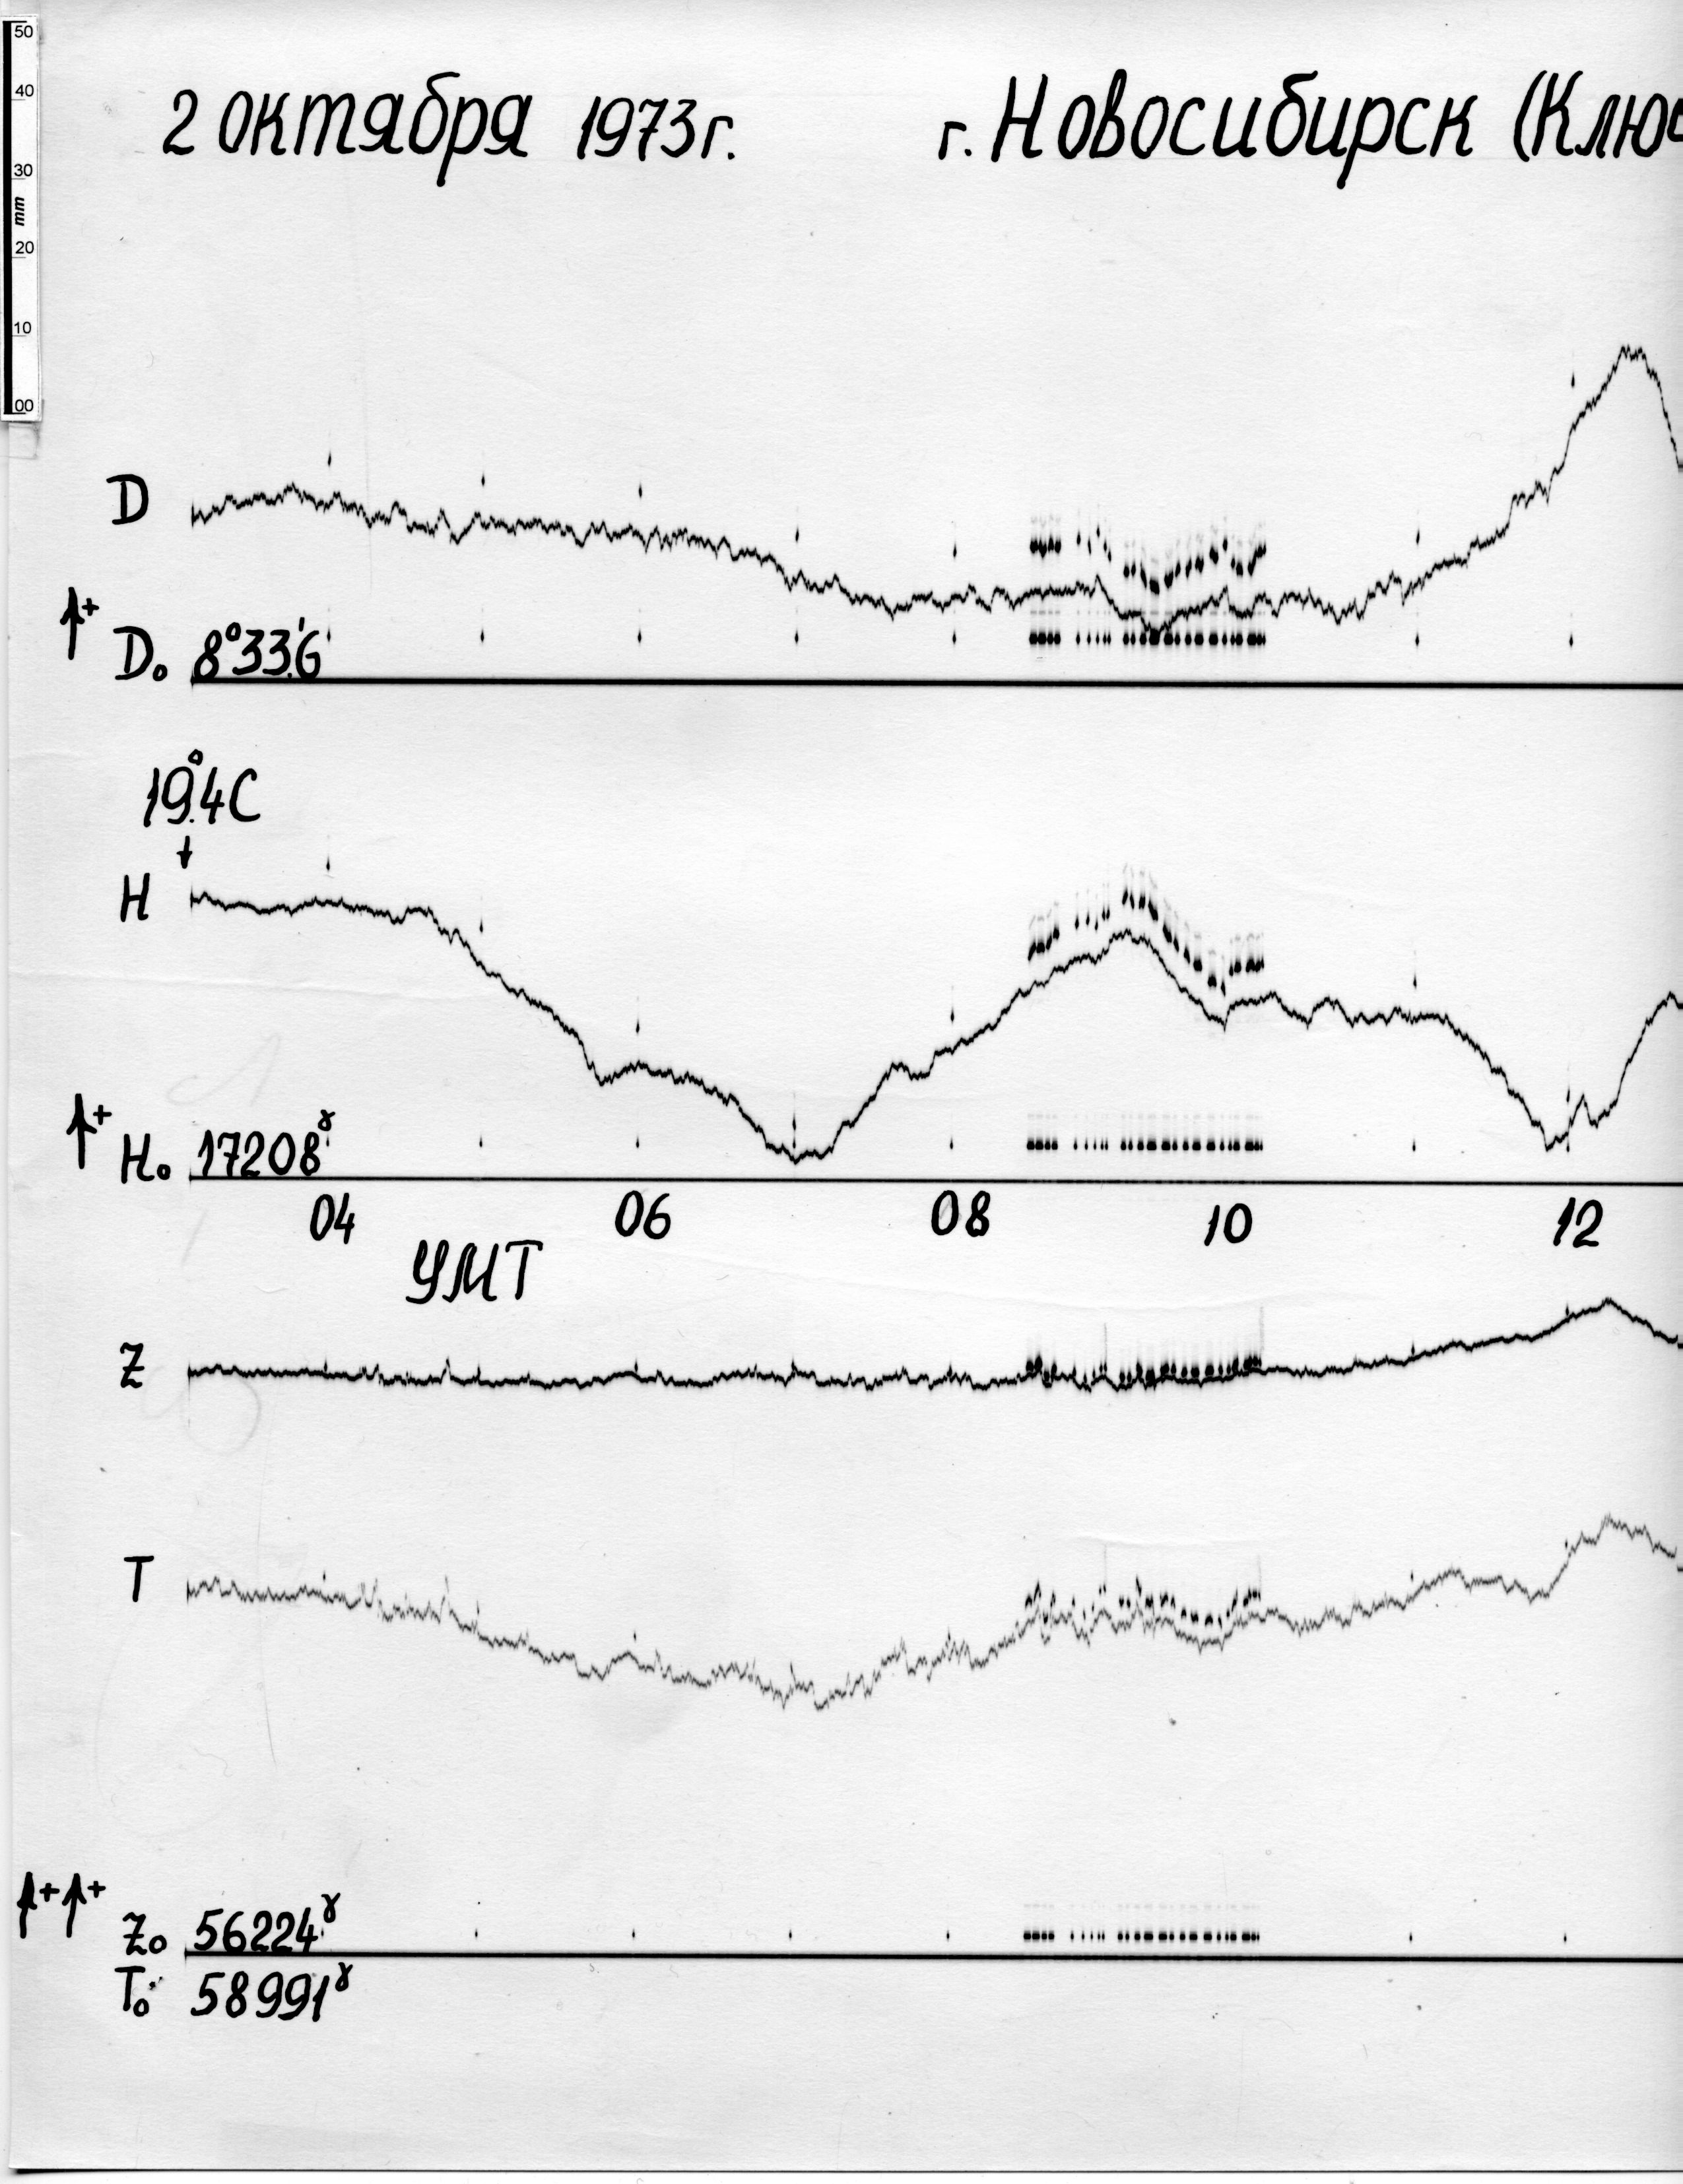 50
40
30
mm
20
10
00
2 октября 1973г. г. Новосибирск (Клю
D
↑+ D₀ 8°33.′6
19.°4C
↓
H
↑+ H₀ 17208ᵞ
04 06 08 10 12
УМТ
Z
T
↑+↑+ Z₀ 56224ᵞ
T₀ 58991ᵞ